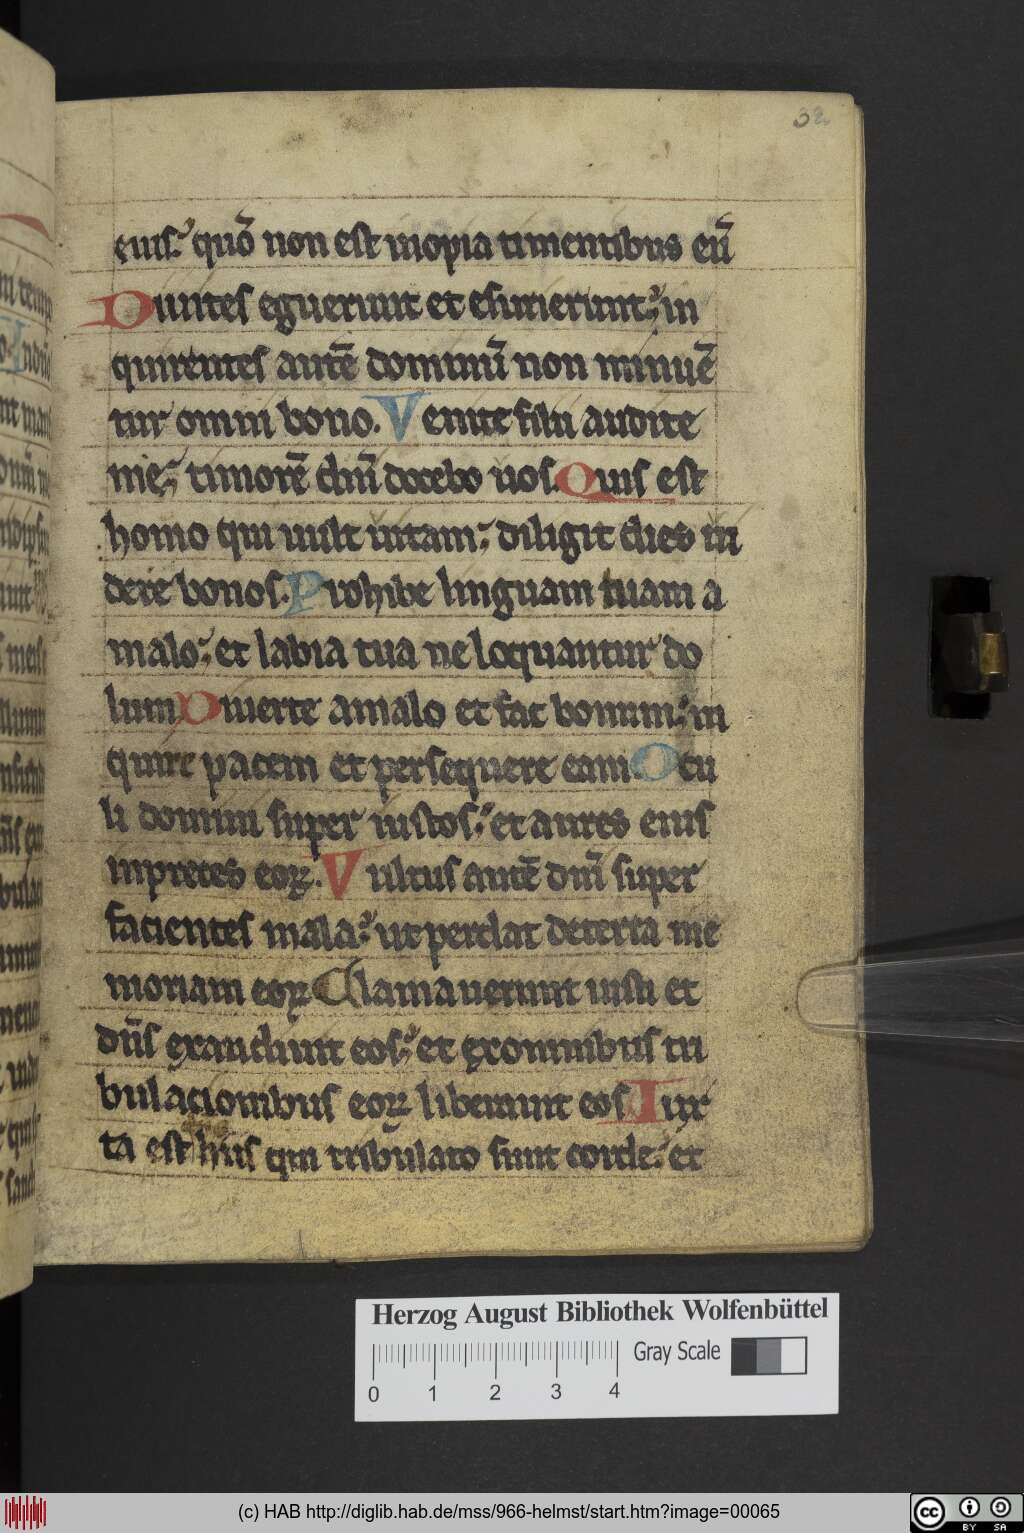 32
eius: quō non est inopia timentibus eū
Diuites eguerunt et esurierunt: in
quirentes autē dominū non minuē
tur omni bono. Venite filii audite
me: timorē dn̄i docebo uos. Quis est
homo qui uult uitam: diligit dies ui
dere bonos. Prohibe linguam tuam a
malo: et labia tua ne loquantur do
lum Diuerte a malo et fac bonum: in
quire pacem et persequere eam. Ocu
li domini super iustos: et aures eius
in preces eoꝝ. Vultus autē dn̄i super
facientes mala: ut perdat de terra me
moriam eoꝝ Clamauerunt iusti et
dn̄s exaudiuit eos: et ex omnibus tri
bulacionibus eoꝝ liberauit eos Iux
ta est hiis qui tribulato sunt corde: et
Herzog August Bibliothek Wolfenbüttel
Gray Scale
0 1 2 3 4
(c) HAB http://diglib.hab.de/mss/966-helmst/start.htm?image=00065
cc BY SA